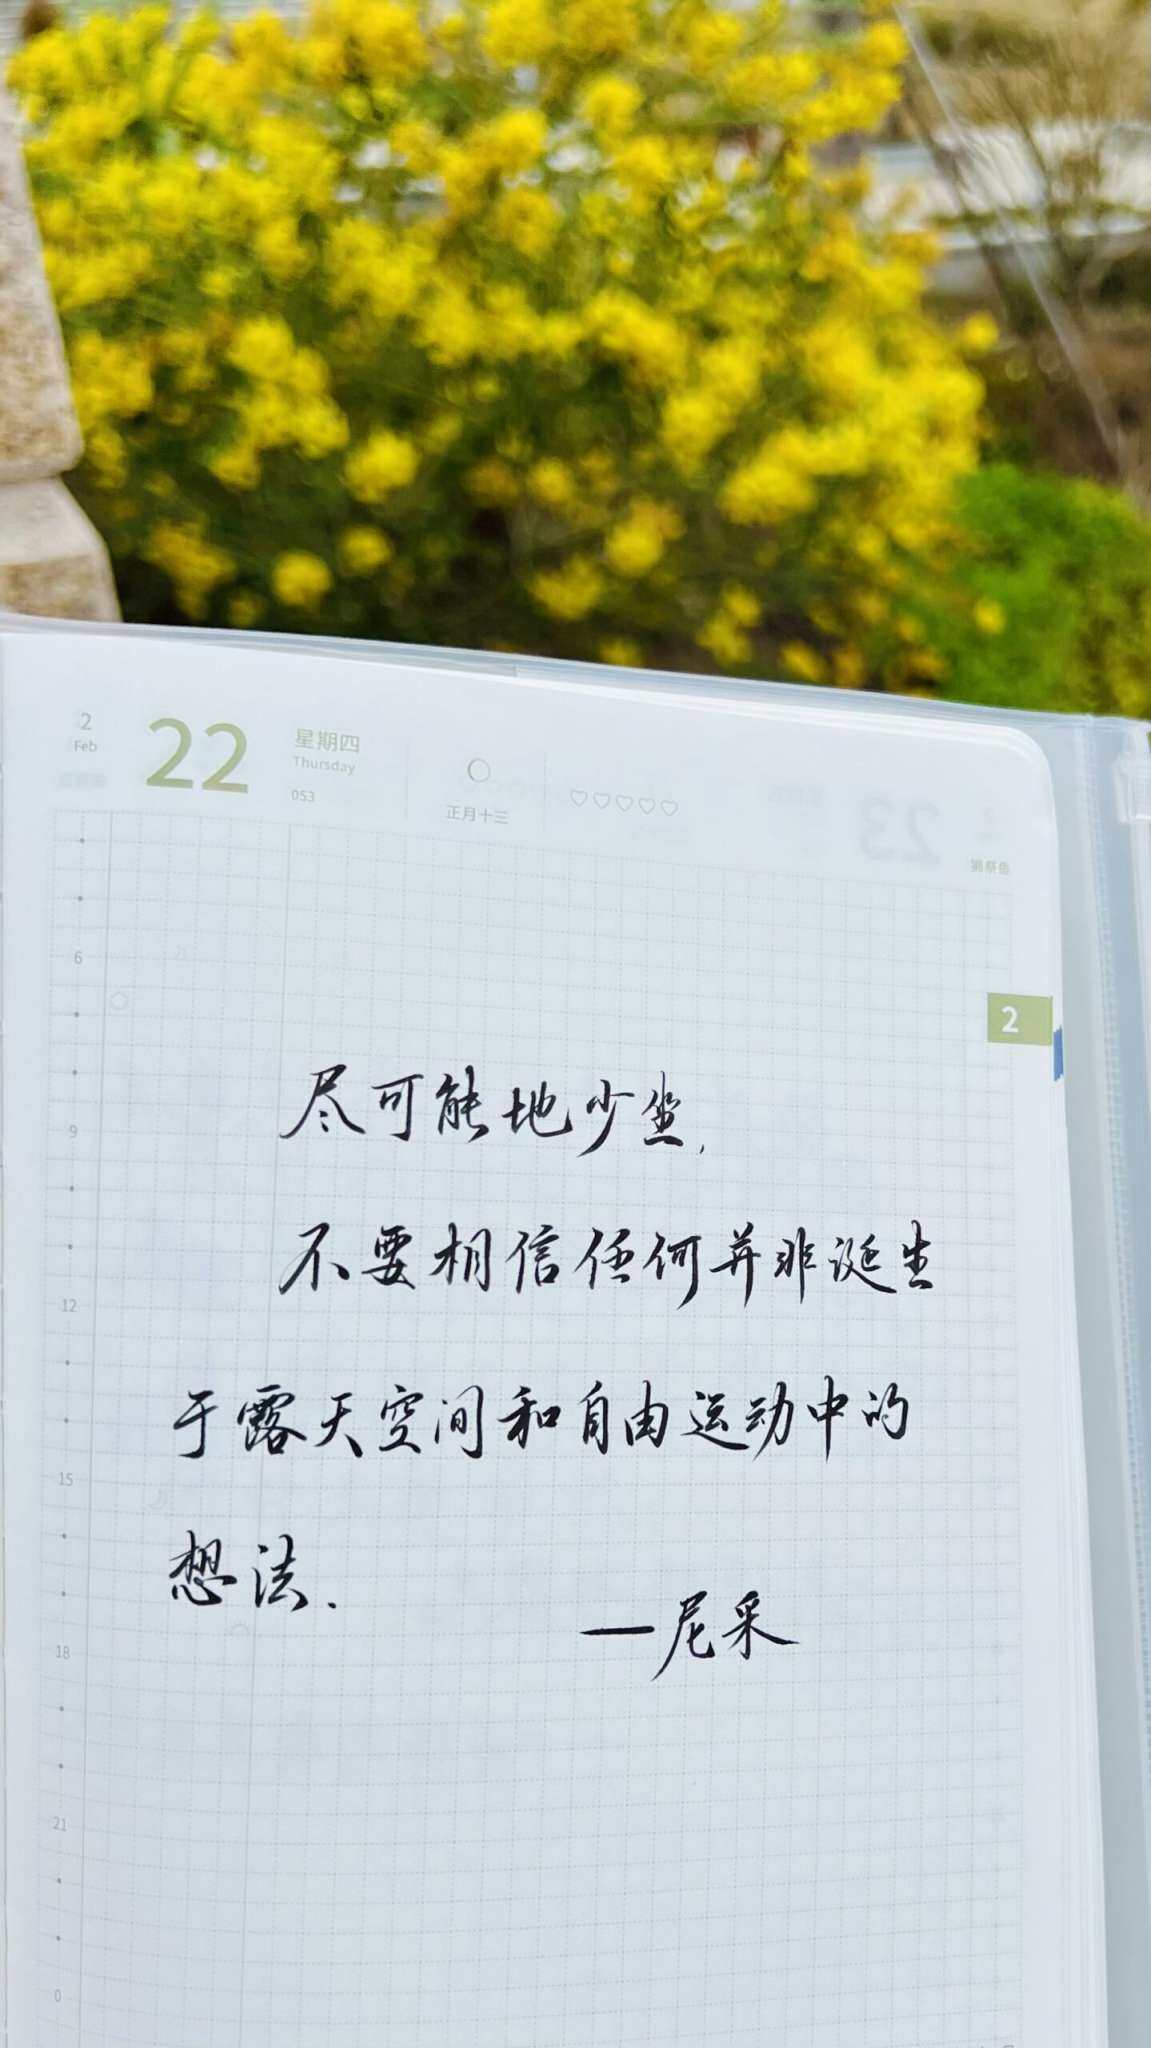 2
Feb
22
星期四
Thursday
053
正月十三
獭祭鱼
2
6
9
12
15
18
21
0
尽可能地少坐，
不要相信任何并非诞生
于露天空间和自由运动中的
想法.
—尼采